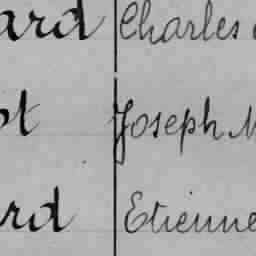 ard Charles
ot Joseph M
rd Etienne